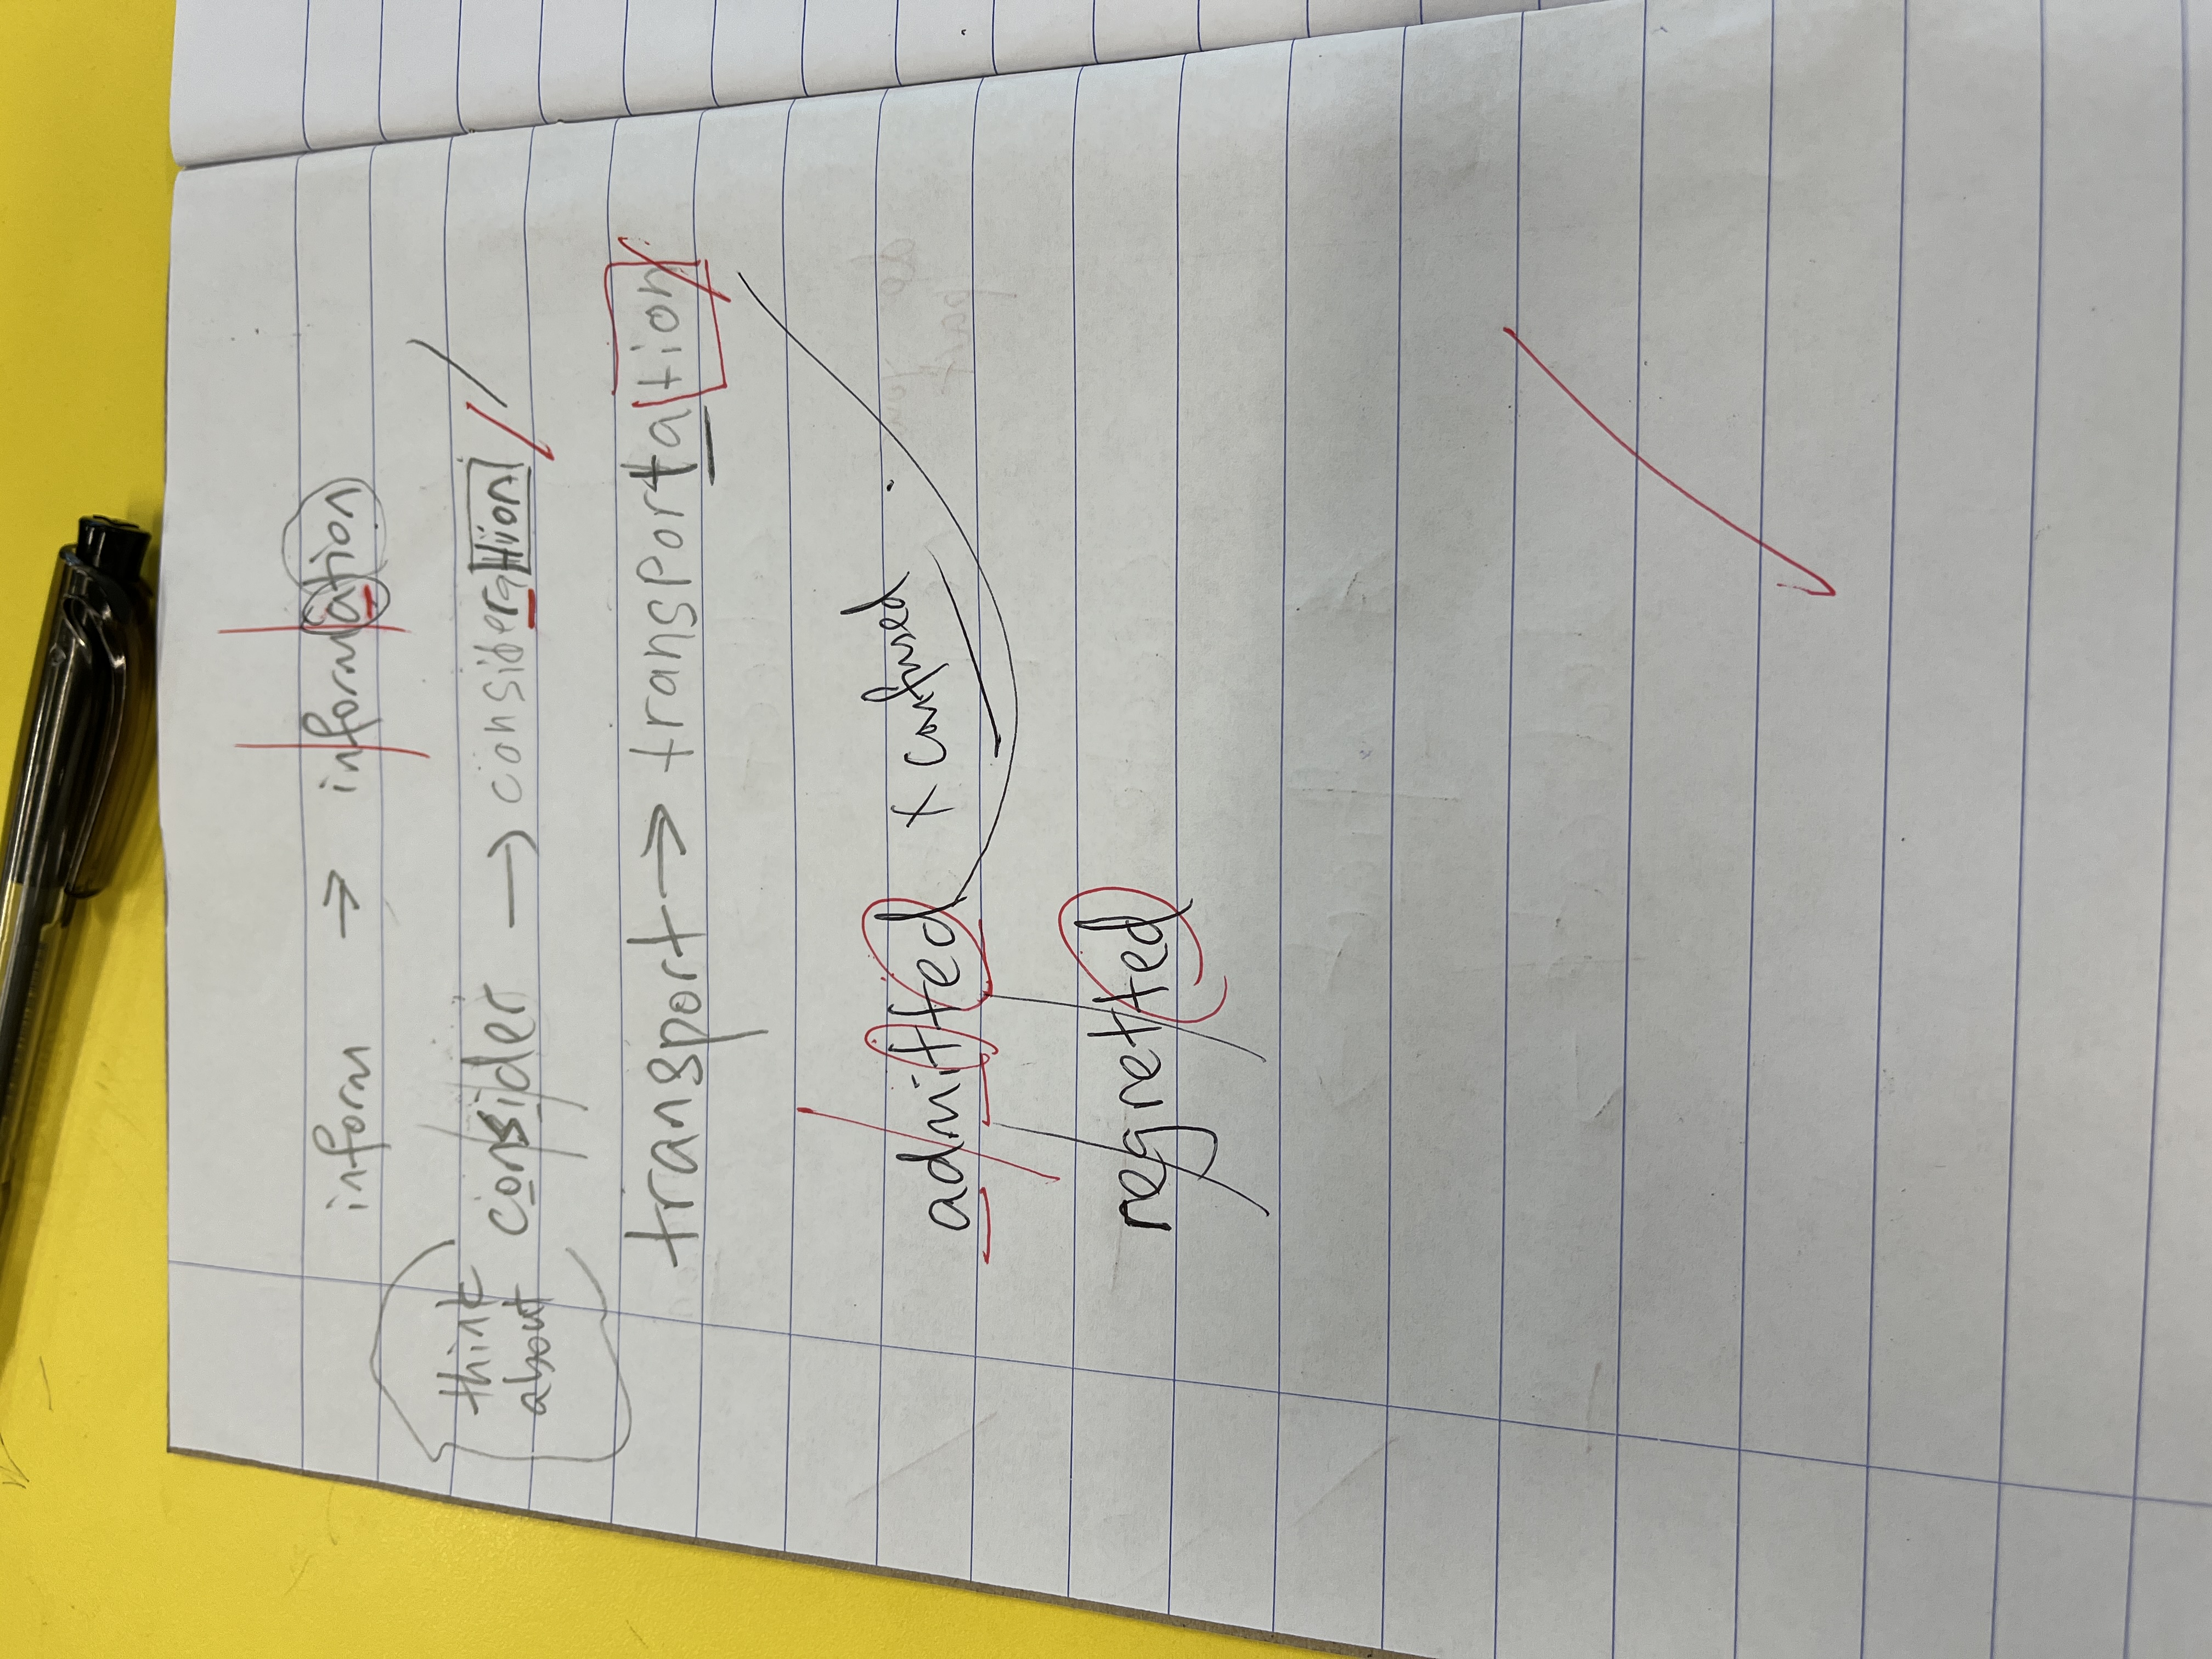 inform → information
think
about
consider → consideration
transport → transportation
admitted x confused
regretted